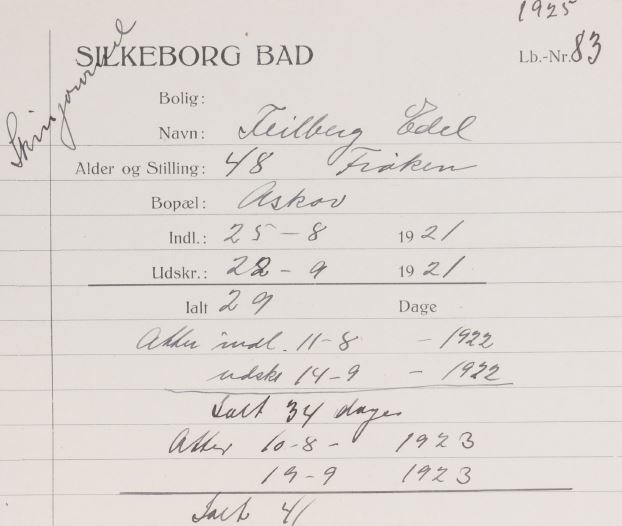 1925
SILKEBORG BAD
Lb.-Nr. 83
Skrivjournal
Bolig:
Navn: Feilberg Edel
Alder og Stilling: 48 Frøken
Bopæl: Askov
Indl.: 25-8 1921
Udskr.: 22-9 1921
Ialt 29 Dage
Atter indl. 11-8 - 1922
udskr 14-9 - 1922
Ialt 34 dage
Atter 10-8- 1923
19-9 1923
Ialt 41